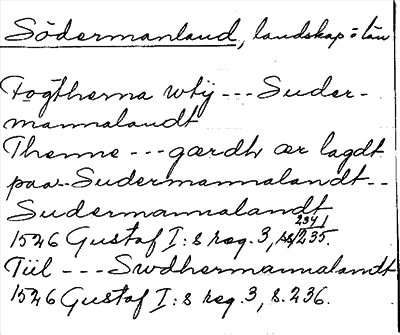 Södermanland, landskap o län
Fogtherna wtij --- Suder-
mannalandt
Thenne --- gærdh ær lagdt
paa -- Sudermannalandt --
Sudermannalandt
1526 Gustaf I:s reg. 3, ss 234 / 235.
Tiil --- Swdhermannalandt
1526 Gustaf I:s reg. 3, s. 236.